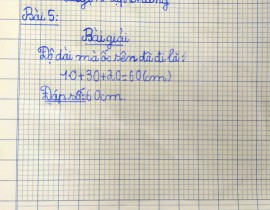 Bài 5:
Bài giải
Độ dài mà ốc sên đã đi là:
10+30+20=60(cm)
Đáp số:60cm